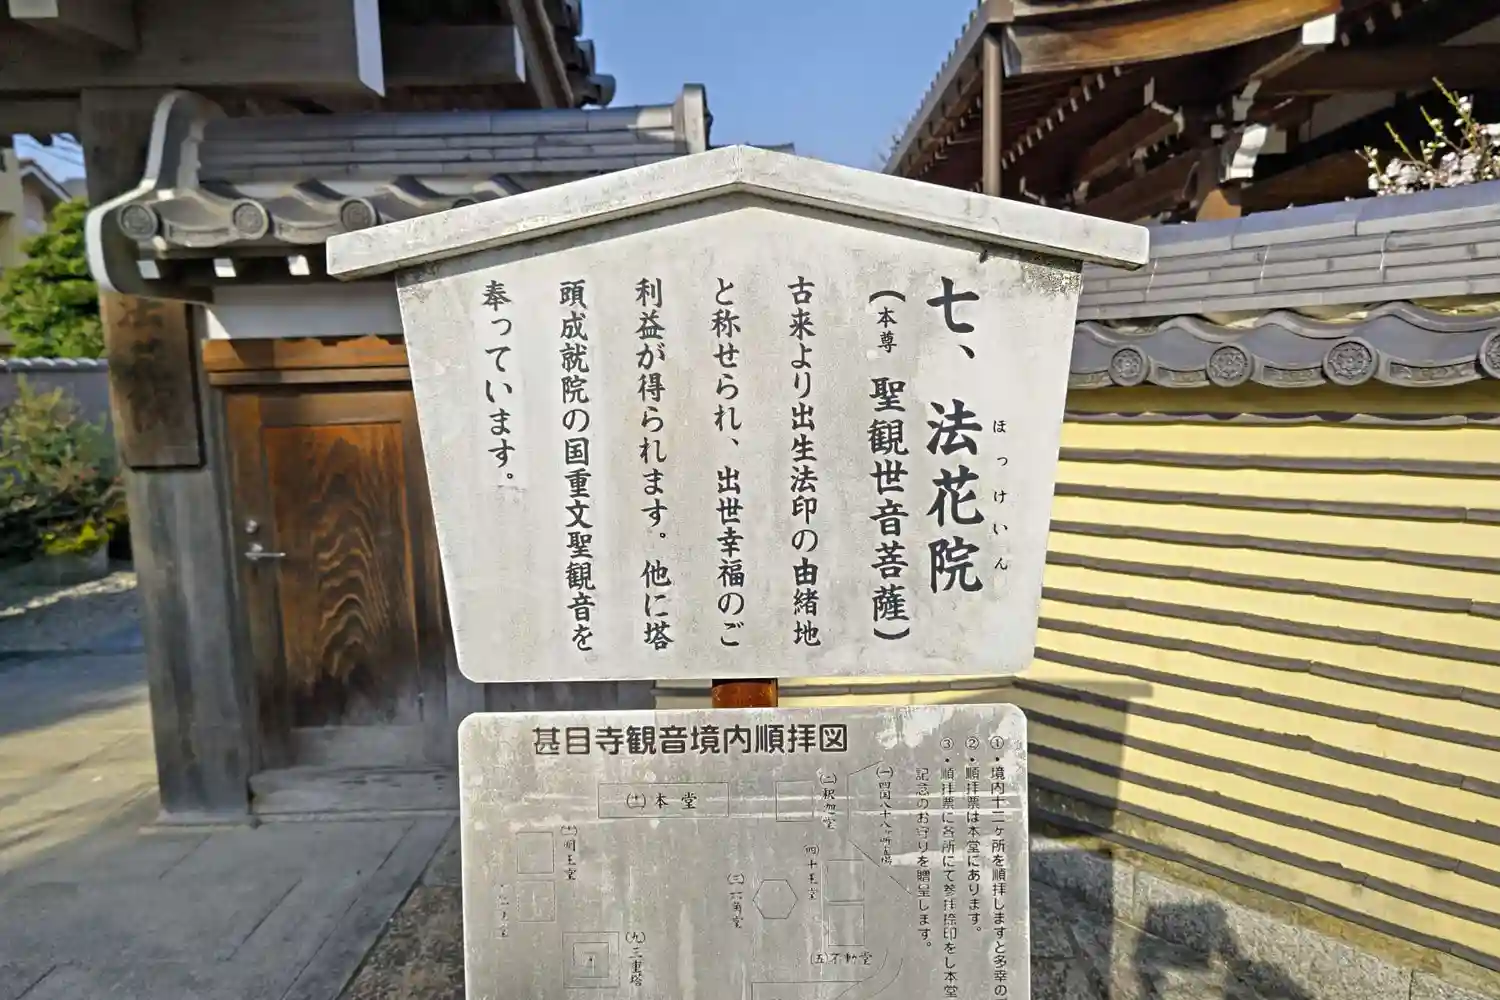 七、法花院
ほっけいん
（本尊 聖観世音菩薩）
古来より出生法印の由緒地
と称せられ、出世幸福のご
利益が得られます。他に塔
頭成就院の国重文聖観音を
奉っています。
甚目寺観音境内順拝図
①・境内十二ヶ所を順拝しますと多幸の
②・順拝票は本堂にあります。
③・順拝票に各所にて参拝捺印をし本堂
記念のお守りを贈呈します。
㈠四国八十八ヶ所霊場
㈡釈迦堂
㈢六角堂
㈣十王堂
㈤不動堂
㈨三重塔
本堂